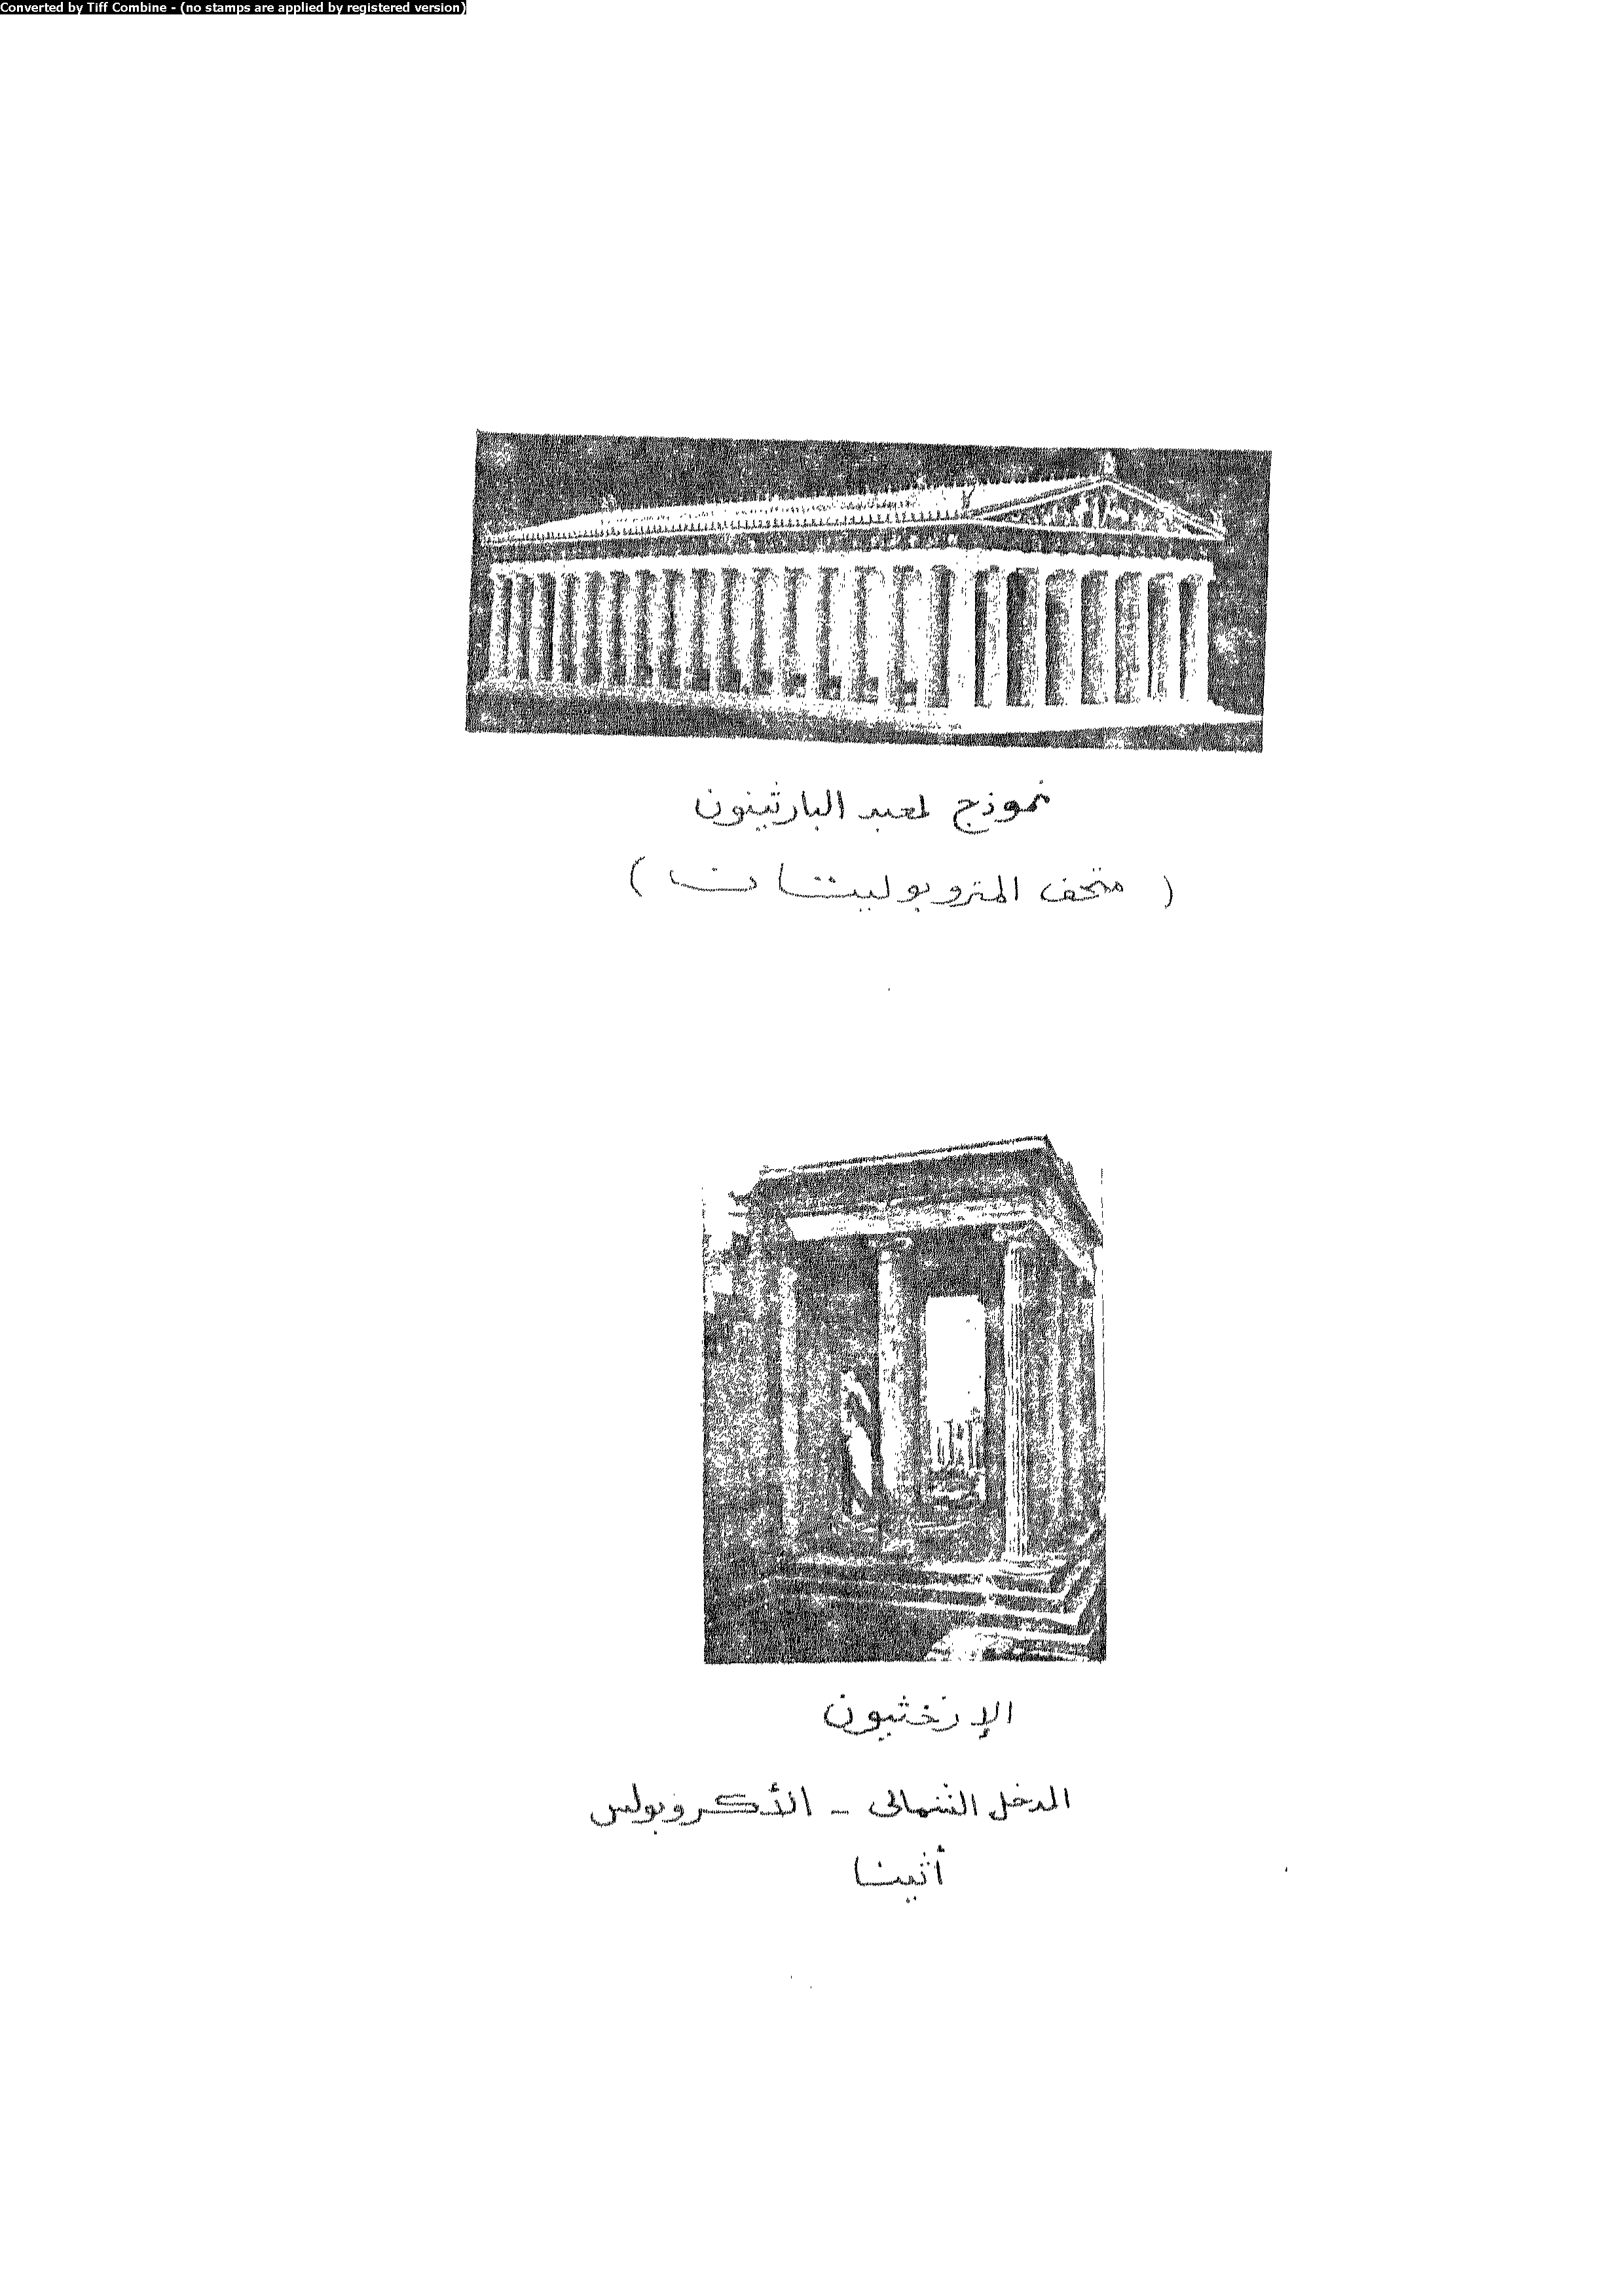 Converted by Tiff Combine - (no stamps are applied by registered version)
نموذج لمعبد البارثينون
( متحف المتروبوليتان )
الإرخثيون
المدخل الشمالى - الأكروبولس
أثينا